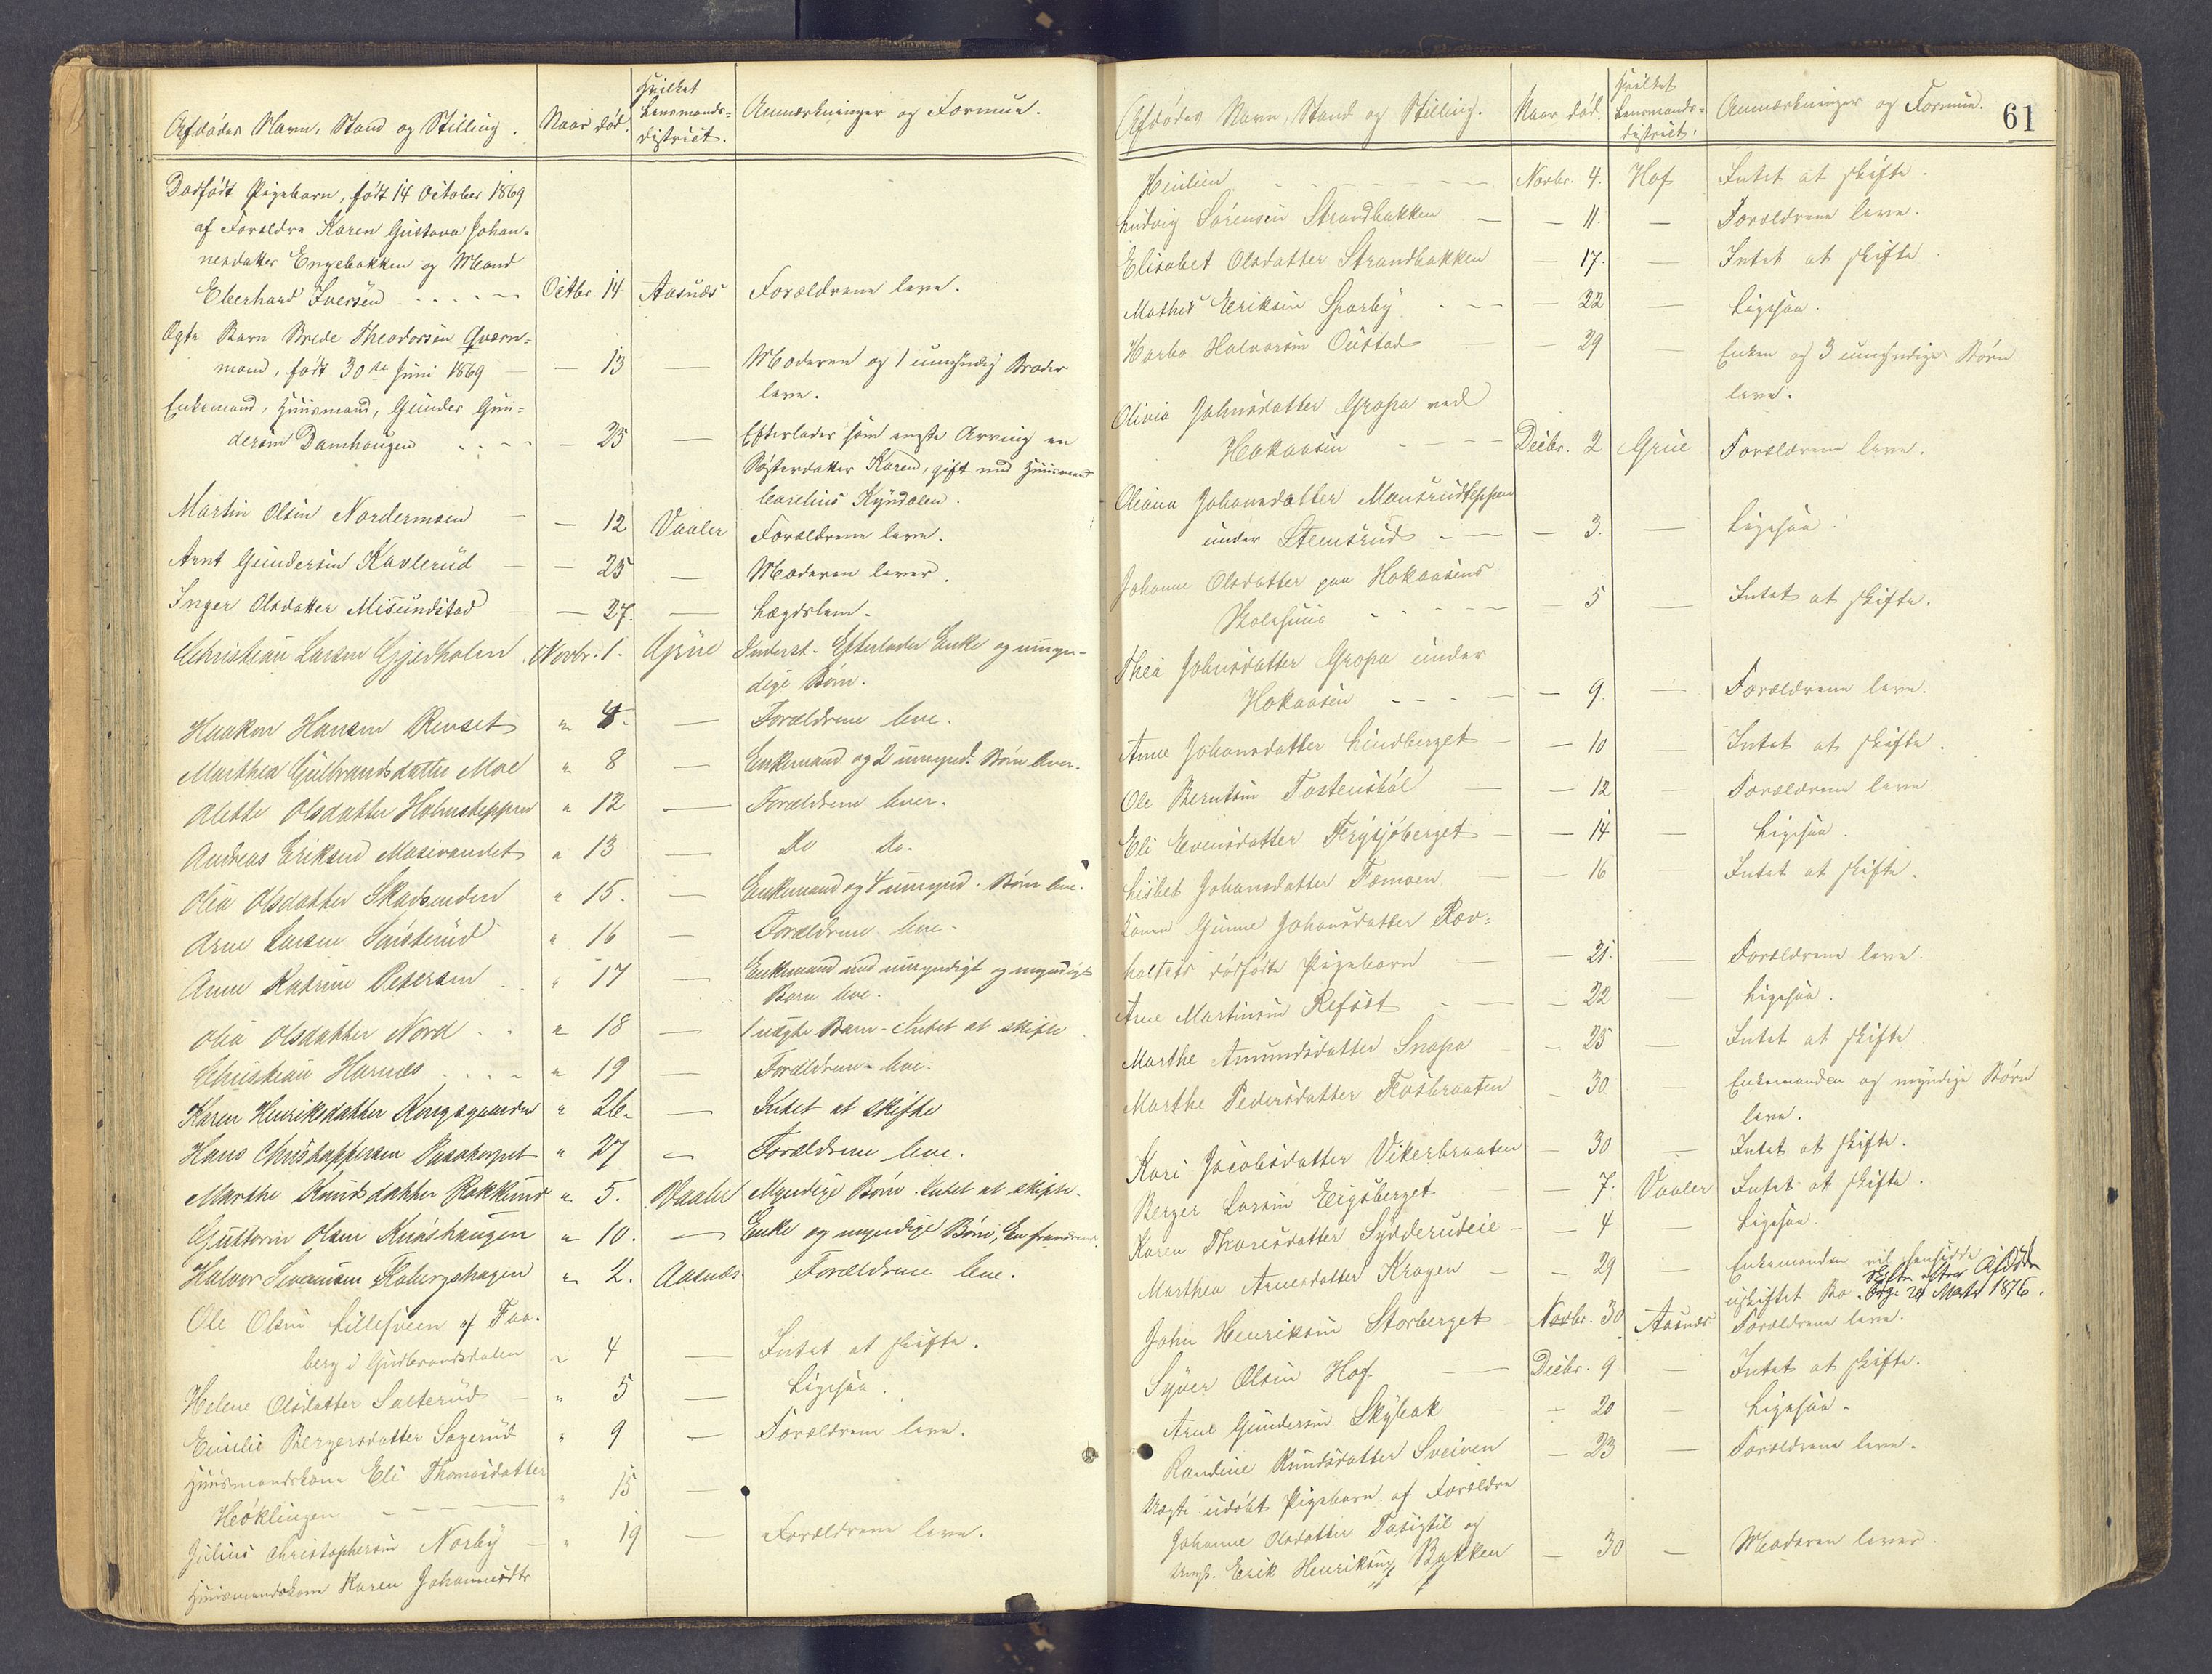 Afdødes Navn, Stand og Stilling. Naar død. Hvilket Lensmands-district. Anmærkninger og Formue.
Dødfødt Pigebarn, født 14 October 1869
af Forældre Karen Gustava Johan-
nesdatter Engebakken og Mand
Eberhard Iversen Octbr. 14 Aasnæs Forældrene leve.
Ægte Barn Brede Theodorsen Qværn-
moen, født 30te Juni 1869 — 13 — Moderen og 1 umyndig Broder
leve.
Enkemand, Huusmand, Gunder Gun-
dersen Damhaugen — 25 — Efterlader som eneste Arving en
Søsterdatter Karen, gift med Huusmand
Carelius Kyndalen.
Martin Olsen Nordermoen — 12 Vaaler Forældrene leve.
Arnt Gundersen Kavlerud — 25 — Moderen lever.
Inger Olsdatter Misundstad — 27. — Lægdslem.
Christian Larsen Gjedholen Novbr. 1. Grue Inderst. Efterlader Enke og umyn-
dige Børn.
Haakon Hansen Renset " 4. — Forældrene leve.
Marthea Gulbrandsdatter Moe " 8 — Enkemand og 2 umynd. Børn lever.
Alethe Olsdatter Holmskeppen " 12 — Forældrene lever.
Andreas Eriksen Masevandet " 13 — do do.
Olia Olsdatter Skadsenden " 15. — Enkemand og 4 umynd. Børn leve.
Arne Larsen " 16 — Forældrene leve.
Anne Katrine Petersen " 17 — Enkemand med umyndigt og myndigt
Barn leve.
Olia Olsdatter Nord " 18 — 1 uægte Barn. Intet at skifte
Christian Harnæs " 19 — Forældrene leve.
Karen Henriksdatter Kongsgaarden " 26. — Intet at skifte
Hans Christophersen " 27 — Forældrene leve.
Marthe Knudsdatter Rokkund " 5. Vaaler Myndige Børn. Intet at skifte.
Guttorm Olsen Knashaugen " 10. — Enke og myndige Børn,
Halvor Svendsen " 2. Aasnæs. Forældrene leve.
Ole Olsen Lillesveen af Faa-
berg i Gudbrandsdalen " 4 — Intet at skifte.
Helene Olsdatter Sæterud " 5 — Ligesaa.
Emilie Bergersdatter Sagerud " 9 — Forældrene leve.
Huusmandskone Eli Thomasdatter
Heoklingen " 15 —
Julius Christophersen Norby " 19 — Forældrene leve.
Huusmandskone Karen Johannesdtr
61
Afdødes Navn, Stand og Stilling. Naar død. Hvilket Lensmands-district. Anmærkninger og Formue.
Novbr. 4. Hof Intet at skifte.
Ludvig Sørensen Strandbakken — 11. — Forældrene leve.
Elisabet Olsdatter Strandbakken — 17. — Intet at skifte
Mathis Eriksen Sparby — 22 — Ligesaa.
Harbo Halvorsen Oustad — 29 Enken og 3 umyndige Børn
leve.
Olivia Johnsdatter Gropa ved
Hokaasen Decbr. 2 Grue Forældrene leve.
Oleana Johansdatter
under Stemsrud — 3. — Ligesaa.
Johanne Olsdatter paa Hokaasens
Skolehuus — 5 — Intet at skifte.
Thea Johnsdatter Gropa under
Hokaasen — 9. — Forældrene leve.
Anne Johansdatter Lindberget — 10 — Intet at skifte.
Ole Berntsen Tostensbøl — 12 Forældrene leve
Eli Evensdatter Frysjøberget — 14 — Ligesaa.
Lisbet Johansdatter Tæmoen — 16 — Intet at skifte.
Konen Gunne Johansdatter Ræv-
holtets dødfødte Pigebarn — 21. — Forældrene leve.
Arne Martinsen Refsæt — 22 — Ligesaa.
Marthe Amundsdatter Snapa — 25 — Intet at skifte.
Marthe Pedersdatter Fosbraaten — 30 — Enkemanden og myndige Børn
leve.
Kari Jacobsdatter Vikerbraaten — 30 — Intet at skifte.
Berger Larsen Eigsberget — 7. Vaaler Intet at skifte.
Karen Thoresdatter Sydderudeie — 4 — Ligesaa.
Marthea Arnesdatter Kragen — 29 — Enkemanden vil hensidde i
uskiftet Bo. Skifte efter Afdøde
Beg. 24 Marts 1876.
John Henriksen Storberget Novbr. 30 Aasnæs Forældrene leve.
Syver Olsen Hof Decbr. 9 — Intet at skifte.
Arne Gundersen Skybak — 20 — Ligesaa.
Randine Knudsdatter Sveiven — 23 — Forældrene leve.
Uægte udøbt Pigebarn af Forældre
Johanne Olsdatter Tasigtil og
Ungk. Erik Henriksen Bakken — 30 — Moderen lever.